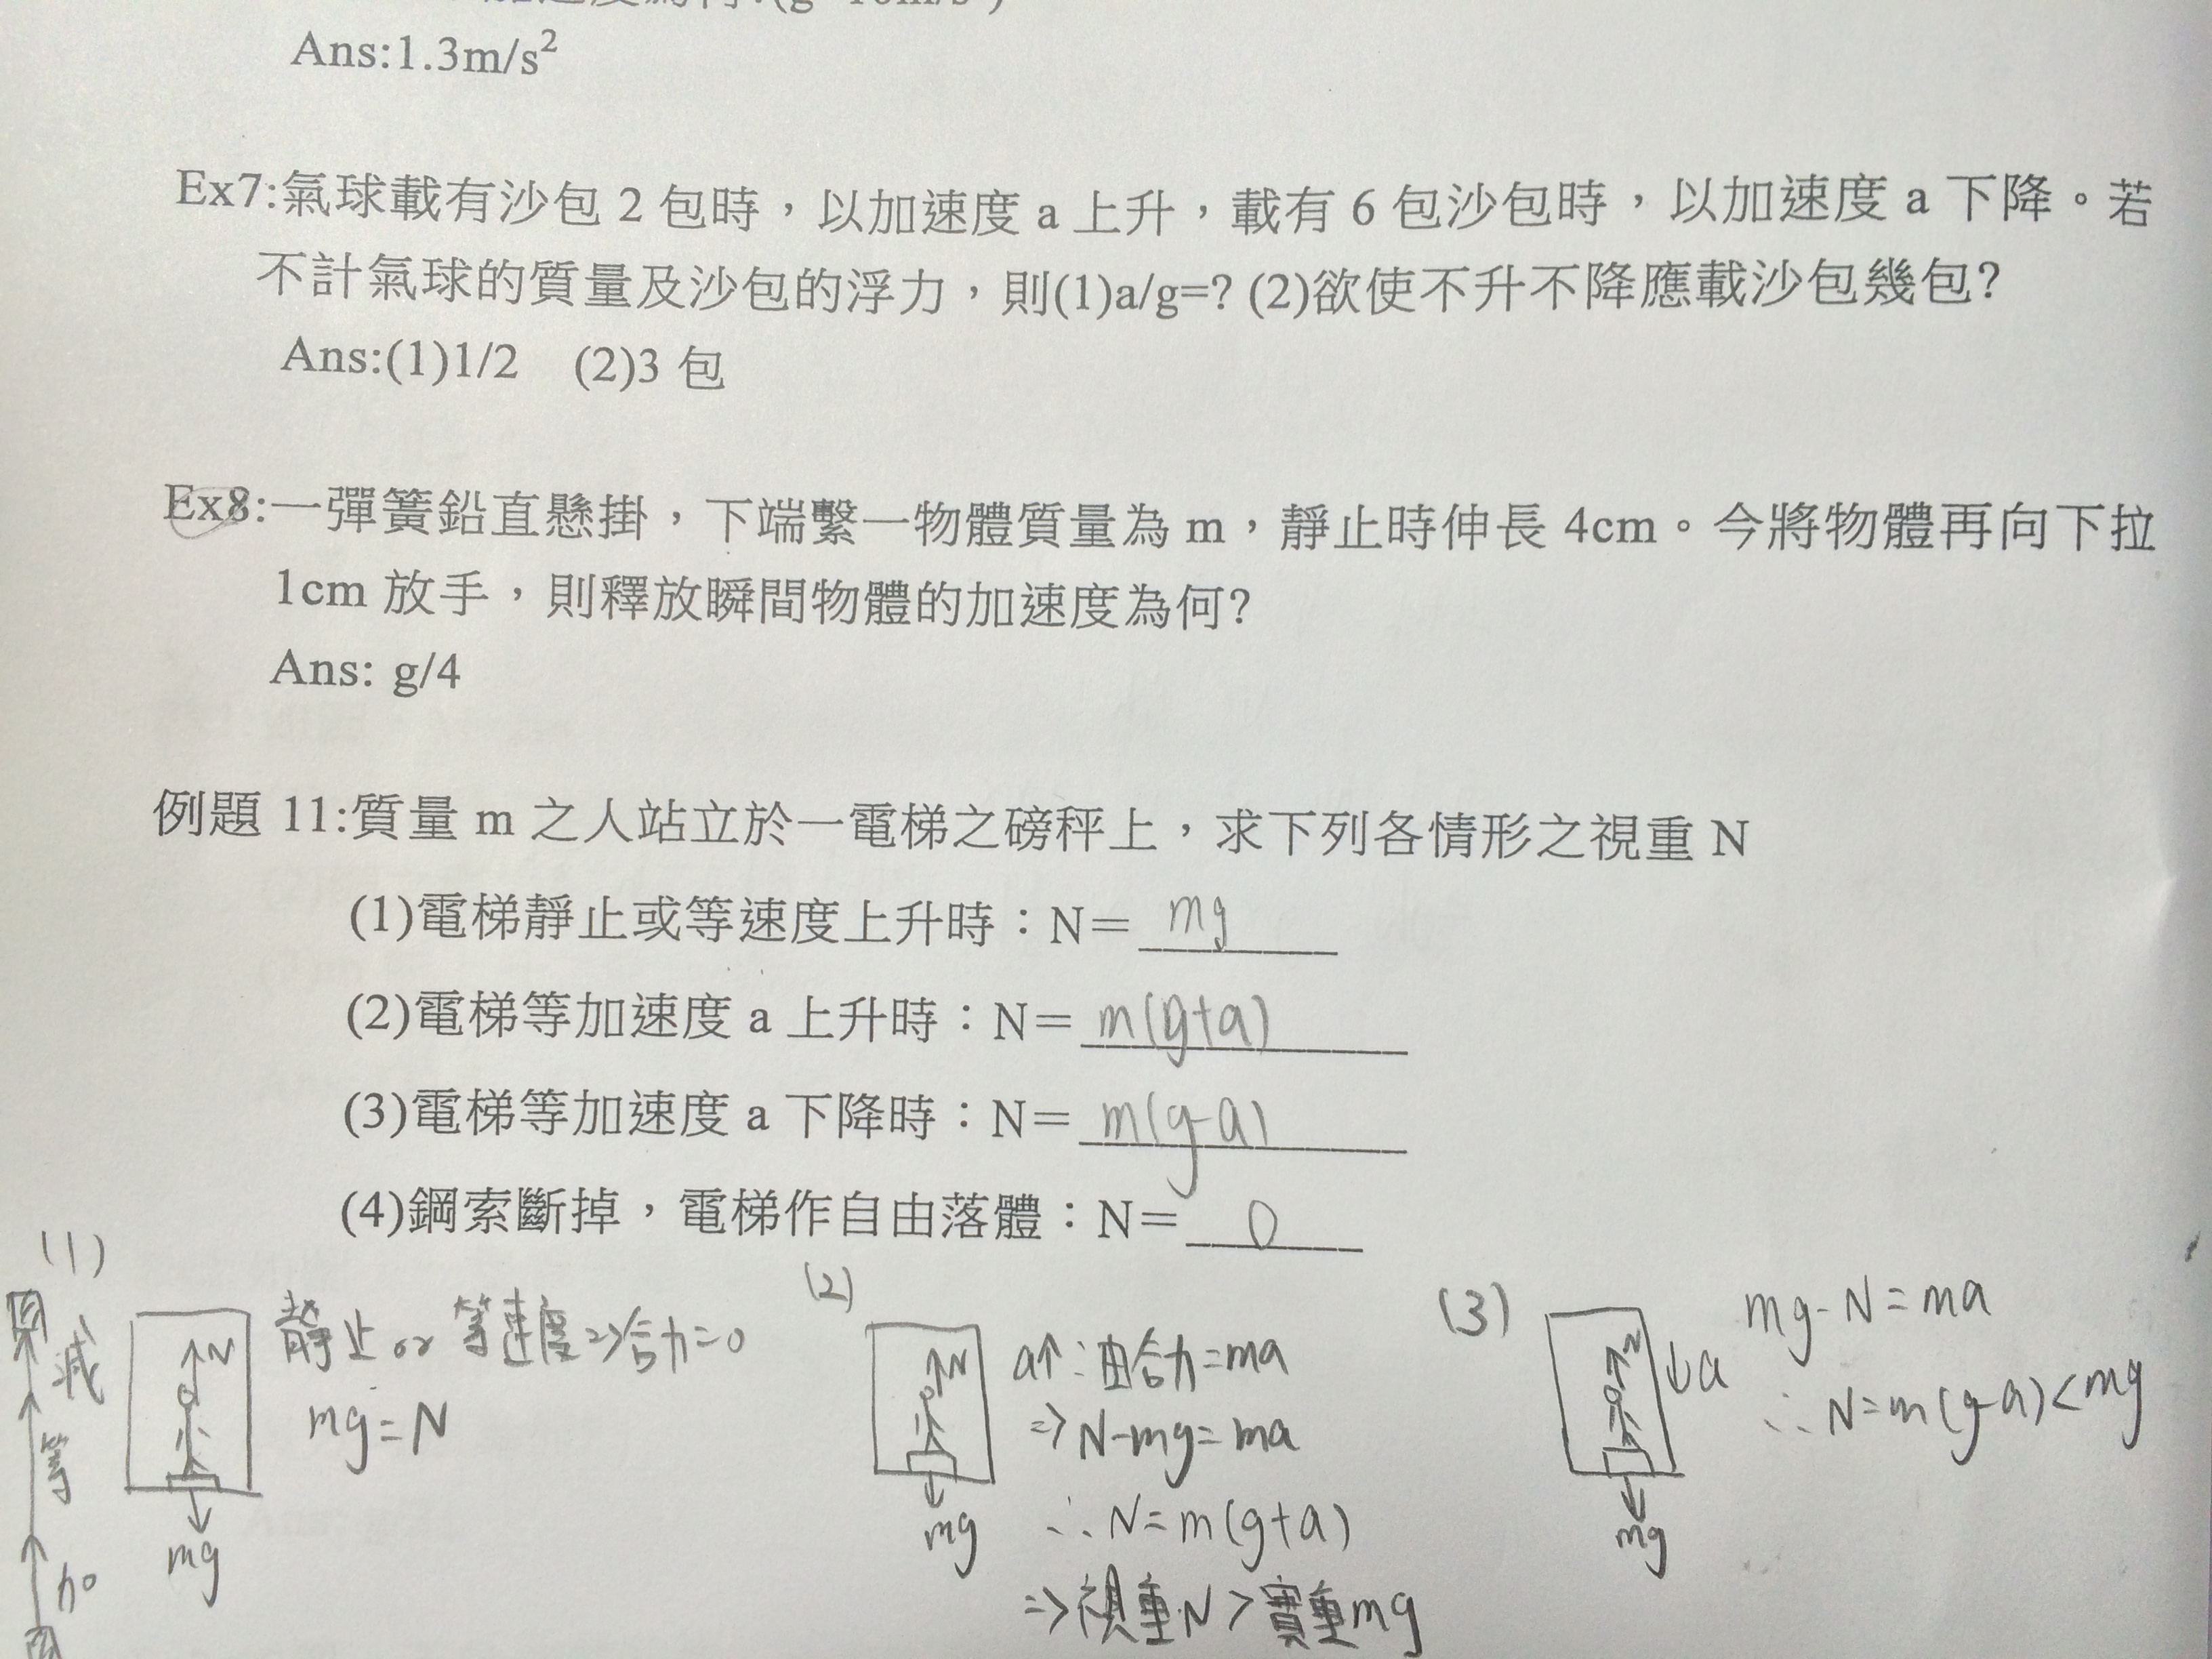 Ans:1.3m/s²
Ex7:氣球載有沙包 2 包時，以加速度 a 上升，載有 6 包沙包時，以加速度 a 下降。若
不計氣球的質量及沙包的浮力，則(1)a/g=? (2)欲使不升不降應載沙包幾包?
Ans:(1)1/2 (2)3 包
Ex8:一彈簧鉛直懸掛，下端繫一物體質量為 m，靜止時伸長 4cm。今將物體再向下拉
1cm 放手，則釋放瞬間物體的加速度為何?
Ans: g/4
例題 11:質量 m 之人站立於一電梯之磅秤上，求下列各情形之視重 N
(1)電梯靜止或等速度上升時：N＝ mg
(2)電梯等加速度 a 上升時：N＝ m(g+a)
(3)電梯等加速度 a 下降時：N＝ m(g-a)
(4)鋼索斷掉，電梯作自由落體：N＝ 0
(1)
減
等
加
N
mg
靜止 or 等速度⇒合力=0
mg=N
(2)
N
mg
a↑:由合力=ma
⇒N-mg=ma
∴N=m(g+a)
⇒視重N>實重mg
(3)
N
↓a
mg
mg-N=ma
∴N=m(g-a)<mg